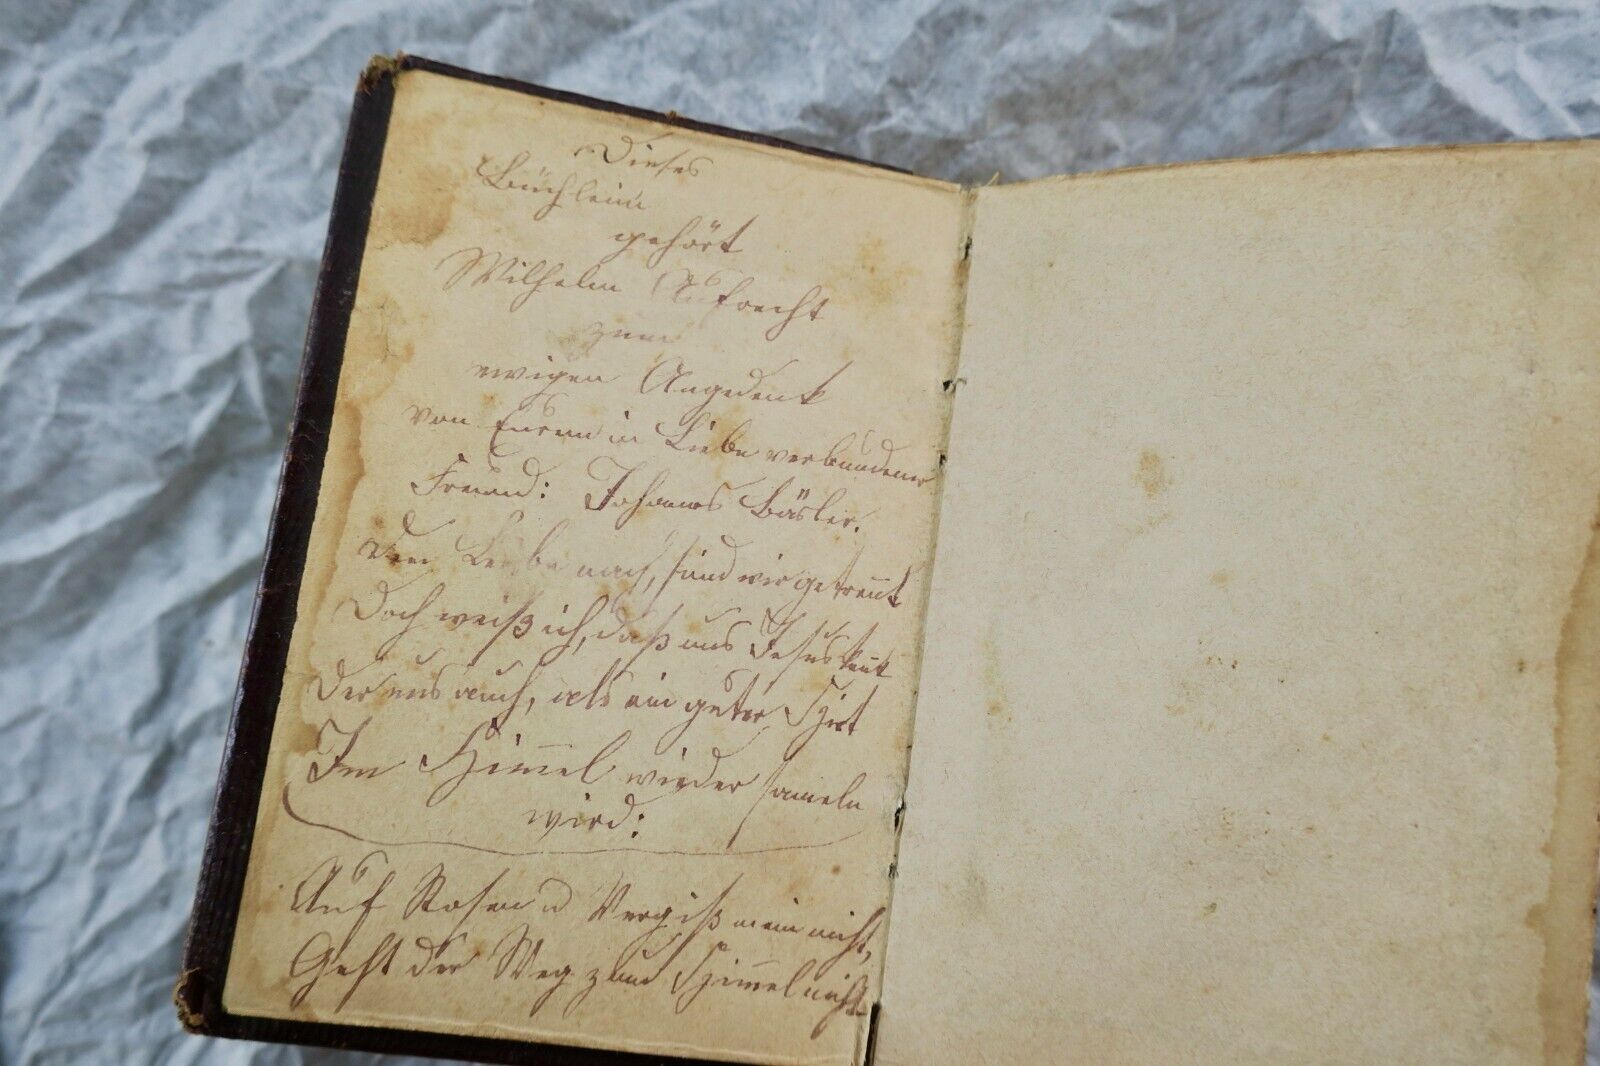 Dieses
Büchlein
gehört
Wilhelm Aufrecht
zum
ewigen Angedenk
von Eurem in Liebe verbundener
Freund: Johannes Bäsler.
Dem Leibe nach, sind wir getren̅t
Doch weiß ich, daß uns Jesus ken̅t
Der uns auch, als ein guter Hirt
Im Him̅el wieder sameln
wird:
Auf Rosen u Vergiß mein nicht,
Geht der Weg zum Him̅el nicht